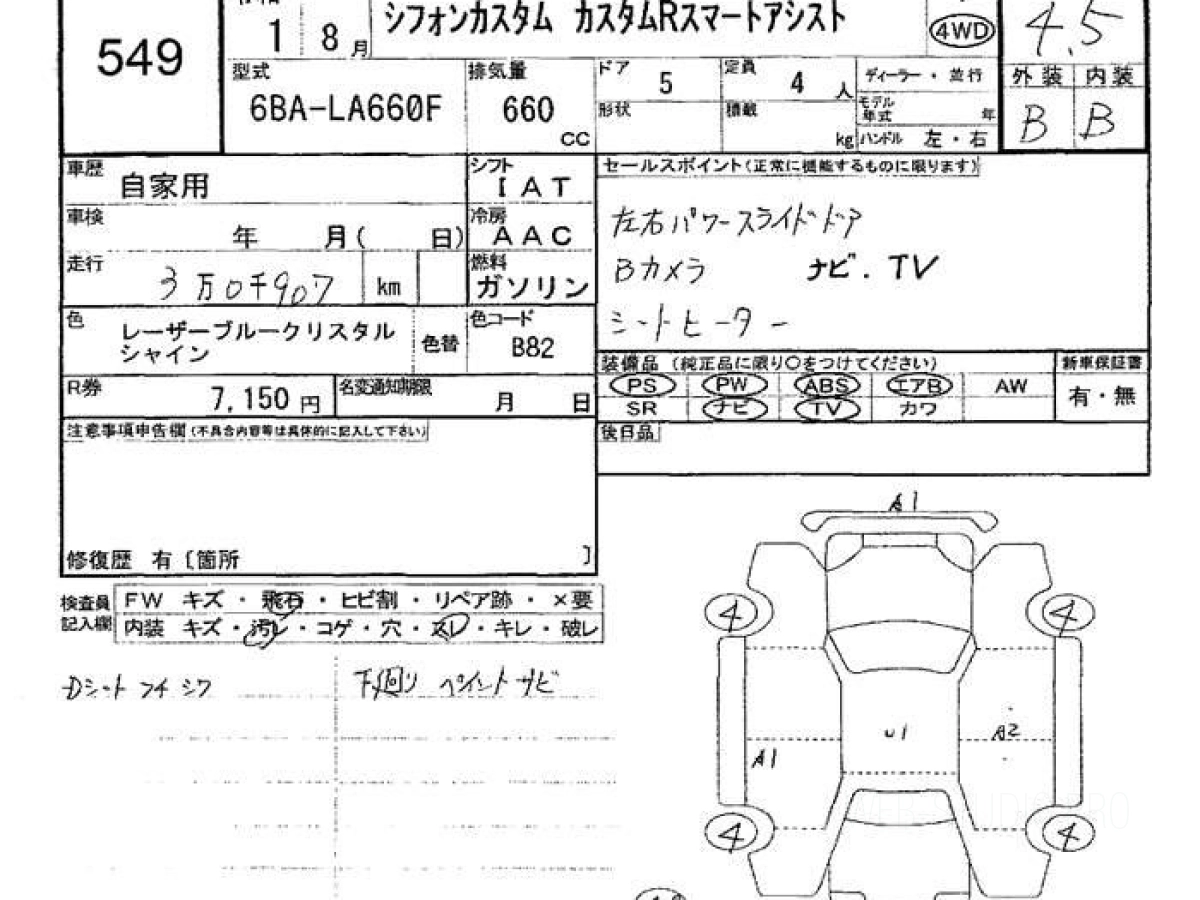 549
1 8月
シフォンカスタム カスタムRスマートアシスト
4WD
4.5
型式
6BA-LA660F
排気量
660
CC
ドア 5
定員 4 人
形状
積載 kg
ディーラー・並行
モデル年式 年
ハンドル 左・右
外装 内装
B B
車歴
自家用
シフト
I A T
車検
年 月( 日)
冷房
A A C
走行
3万0千907 km
燃料
ガソリン
色
レーザーブルークリスタル
シャイン
色替
色コード
B82
R券
7,150 円
名変通知期限
月 日
セールスポイント(正常に機能するものに限ります)
左右パワースライドドア
Bカメラ ナビ.TV
シートヒーター
装備品 (純正品に限り○をつけてください)
PS PW ABS エアB AW
SR ナビ TV カワ
新車保証書
有・無
後日品
注意事項申告欄(不具合内容等は具体的に記入して下さい)
修復歴 有〔箇所 〕
検査員
記入欄
FW キズ・飛石・ヒビ割・リペア跡・×要
内装 キズ・汚レ・コゲ・穴・スレ・キレ・破レ
Dシート フチ シワ
下廻り ペイント サビ
A1
4
4
U1
A2
A1
4
4